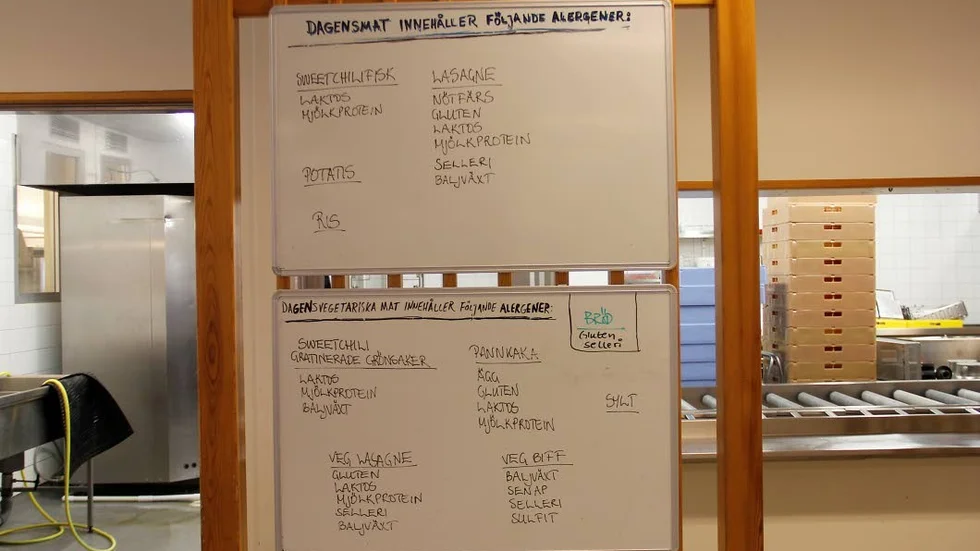 DAGENSMAT INNEHÅLLER FÖLJANDE ALERGENER:
SWEETCHILIFISK
LAKTOS
MJÖLKPROTEIN
POTATIS
RIS
LASAGNE
NÖTFÄRS
GLUTEN
LAKTOS
MJÖLKPROTEIN
SELLERI
BALJVÄXT
DAGENSVEGETARISKA MAT INNEHÅLLER FÖLJANDE ALERGENER:
BRÖD
Gluten
selleri
SWEETCHILI
GRATINERADE GRÖNSAKER
LAKTOS
MJÖLKPROTEIN
BALJVÄXT
PANNKAKA
ÄGG
GLUTEN
LAKTOS
MJÖLKPROTEIN
SYLT
VEG LASAGNE
GLUTEN
LAKTOS
MJÖLKPROTEIN
SELLERI
BALJVÄXT
VEG BIFF
BALJVÄXT
SENAP
SELLERI
SULFIT